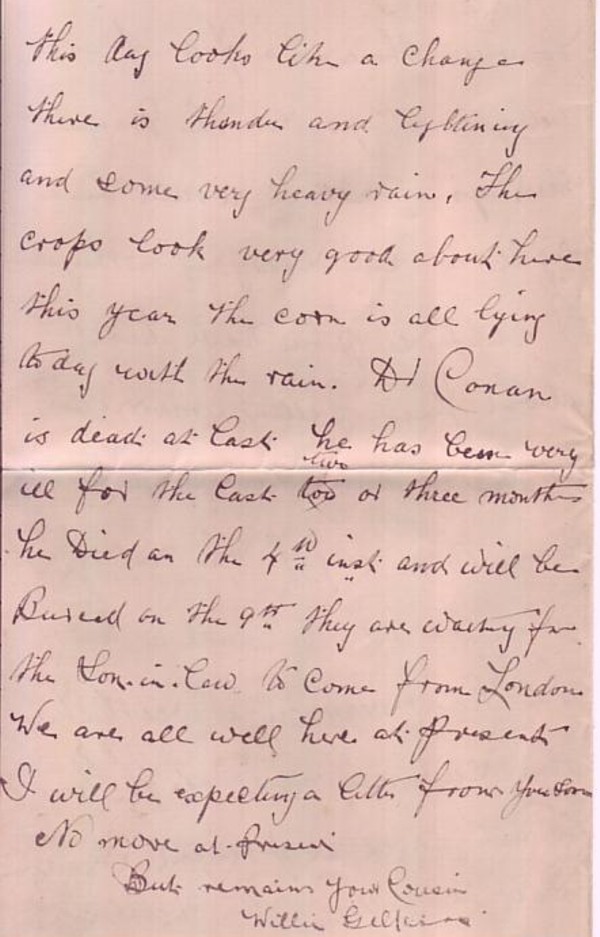 this day looks like a change
there is thunder and lightining
and some very heavy rain. The
crops look very good about here
this year the corn is all lying
to day with the rain. Dr Conan
is dead at last he has been very
two
ill for the last too or three months
he Died on the 4th inst and will be
Buried on the 9th they are waiting for
the Son-in-law to come from London
We are all well here at present
I will be expecting a letter from you soon
No more at present
But remains your Cousin
Willie